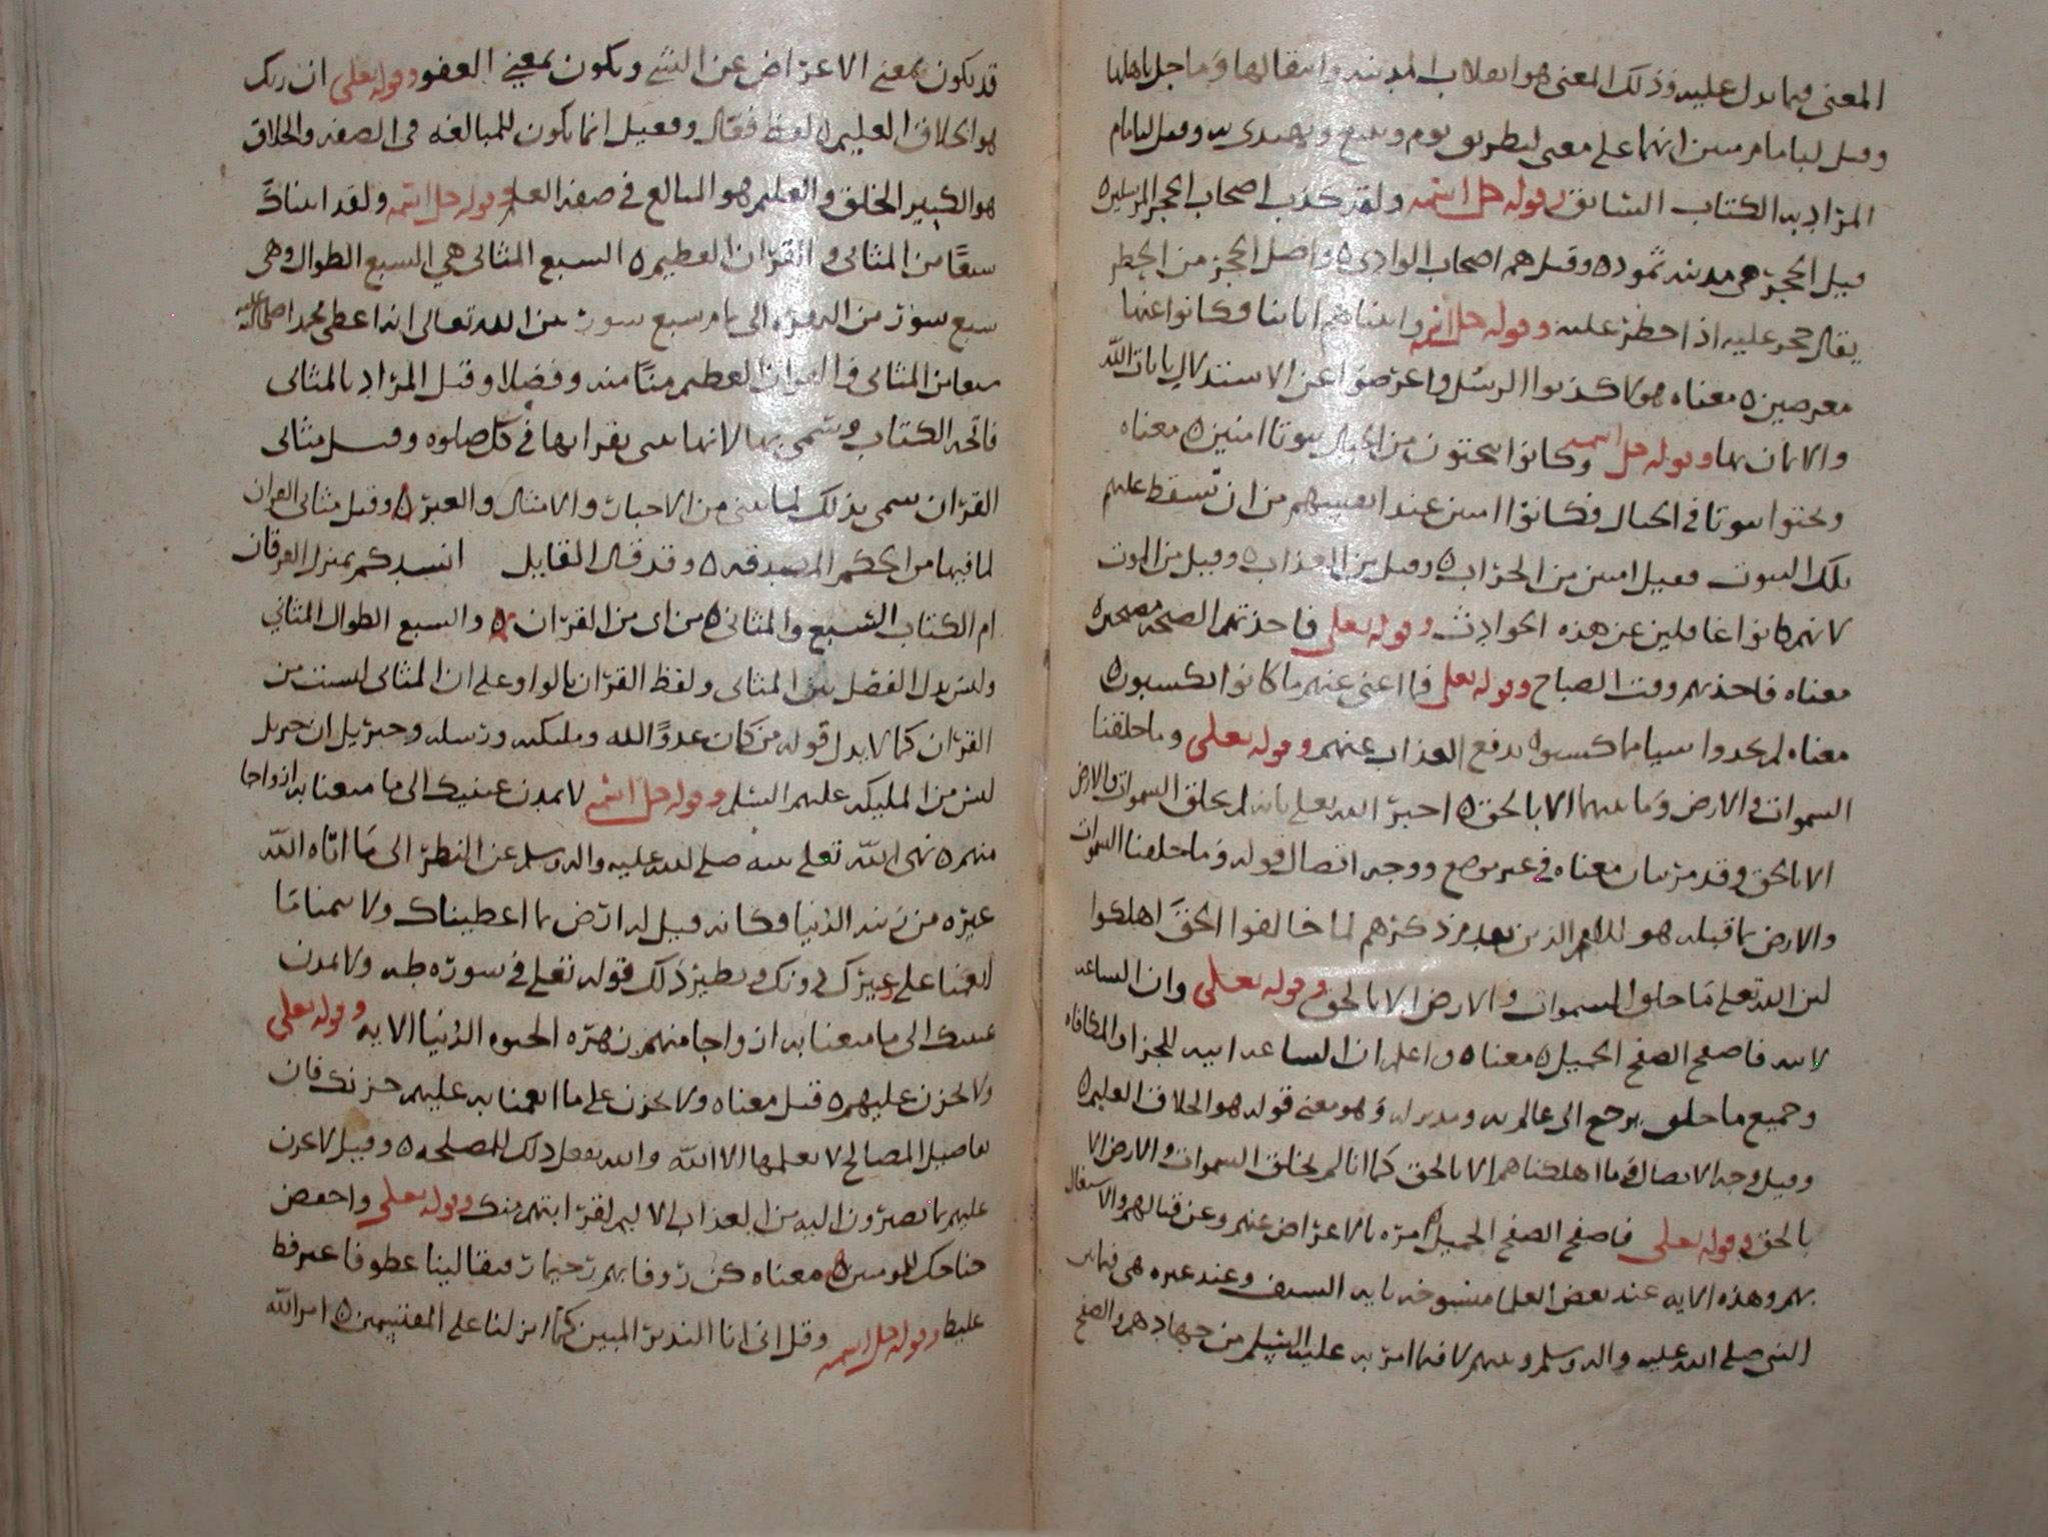 المعنى مما يدل عليه وذلك المعنى هو انقلاب المدينة وانتقالها وما حل باهلها
وقيل لبامام مبين انهما على معنى لبطريق يوم ويتبع ويهتدى به وقيل لبامام
المراد به الكتاب السابق وقوله جل اسمه ولقد كذب اصحاب الحجر المرسلين ه
قيل الحجر هى مدينة ثمود ه وقيل هم اصحاب الوادى ه واصل الحجر من الحظر
يقال حجر عليه اذا حظر عليه وقوله جل اسمه واتيناهم اياتنا فكانوا عنها
معرضين ه معناه هولا كذبوا الرسل واعرضوا عن الاستدلال بايات الله
والايمان بها وقوله جل اسمه وكانوا ينحتون من الجبال بيوتا امنين ه معناه
ونحتوا بيوتا في الجبال فكانوا امنين عند انفسهم من ان تسقط عليهم
تلك البيوت فقيل امنين من الخراب ه وقيل من العذاب ه وقيل من الموت
لانهم كانوا غافلين عن هذه الحوادث وقوله تعلى فاخذتهم الصيحة مصبحين ه
معناه فاخذتهم وقت الصباح وقوله تعلى فما اغنى عنهم ما كانوا يكسبون ه
معناه لم يجدوا شيا مما كسبوا يدفع العذاب عنهم وقوله تعلى وما خلقنا
السموات والارض وما بينهما الا بالحق ه اخبر الله تعلى بانه لم يخلق السموات والارض
الا بالحق وقد مر بيان معناه في غير موضع ووجه اتصال قوله وما خلقنا السموات
والارض بما قبله هو ان الامم الذين تقدم ذكرهم لما خالفوا الحق اهلكوا
لان الله تعلى ما خلق السموات والارض الا بالحق وقوله تعلى وان الساعة
لاتية فاصفح الصفح الجميل ه معناه ه واعلم ان الساعة اتية للجزا والمكافاه
وجميع ما خلق يرجع الى عالم به ومدبر له وهو معنى قوله هو الخلاق العليم ه
وقيل وجه الاتصال اى ما اهلكناهم الا بالحق كما انا لم نخلق السموات والارض الا
بالحق وقوله تعلى فاصفح الصفح الجميل امره بالاعراض عنهم وعن قتالهم والاشتغال
بهم وهذه الايه عند بعض العلما منسوخه باية السيف وعند غيره هى فيما بين
النبي صلى الله عليه واله وسلم وبينهم لا فيما امر به عليه السلم من جهادهم والصفح
قد يكون بمعنى الاعراض عن الشي ويكون بمعنى العفو وقوله تعلى ان ربك
هو الخلاق العليم ه لفظ فعال وفعيل انما يكون للمبالغه في الصفه والخلاق
هو الكبير الخلق والعليم هو المبالغ في صفة العلم وقوله جل اسمه ولقد اتيناك
سبعا من المثانى والقران العظيم ه السبع المثانى هي السبع الطوال وهى
سبع سور من البقره الى تمام سبع سور بين الله تعالى انه اعطى محمدا صلى الله عليه
سبعا من المثانى والقران العظيم منا منه وفضلا وقيل المراد بالمثانى
فاتحة الكتاب وسمى بها لانها تثنى بقراتها في كل صلوه وقيل مثانى
القران سمى بذلك لما يثنى من الاخبار والامثال والعبر ه وقيل مثانى القران
لما فيها من الحكم المصدقه ه وقد قال القايل انشدكم بمنزل الفرقان
ام الكتاب السبع والمثانى ه من اى من القران ه والسبع الطوال المثاني
وليس يدل الفصل بين المثانى ولفظ القران بالواو على ان المثانى ليست من
القران كما لا يدل قوله من كان عدوا لله وملئكته ورسله وجبريل ان جبريل
ليس من المليكه عليهم السلم وقوله جل اسمه لا تمدن عينيك الى ما متعنا به ازواجا
منهم ه نهى الله تعلى نبيه صلى الله عليه واله وسلم عن النظر الى ما اتاه الله
غيره من زينة الدنيا فكانه قيل له ارض بما اعطيناك ولا يهمنك ما
انعمنا على غيرك دونك ونظير ذلك قوله تعلى في سوره طه ولا تمدن
عينيك الى ما متعنا به ازواجا منهم زهره الحيوه الدنيا الايه وقوله تعلى
ولا تحزن عليهم ه قيل معناه ولا تحزن على ما انعمنا به عليهم حزنك فان
تفاصيل المصالح لا يعلمها الا الله والله يفعل ذلك للمصلحه ه وقيل لا تحزن
عليهم بما يصيرون اليه من العذاب الاليم لقرابتهم منك وقوله تعلى واخفض
جناحك للمومنين ه معناه كن روفا بهم رحيما رفيقا لينا عطوفا غير فظ
غليظ وقوله جل اسمه وقل انى انا النذير المبين كما انزلنا على المقتسمين ه امر الله